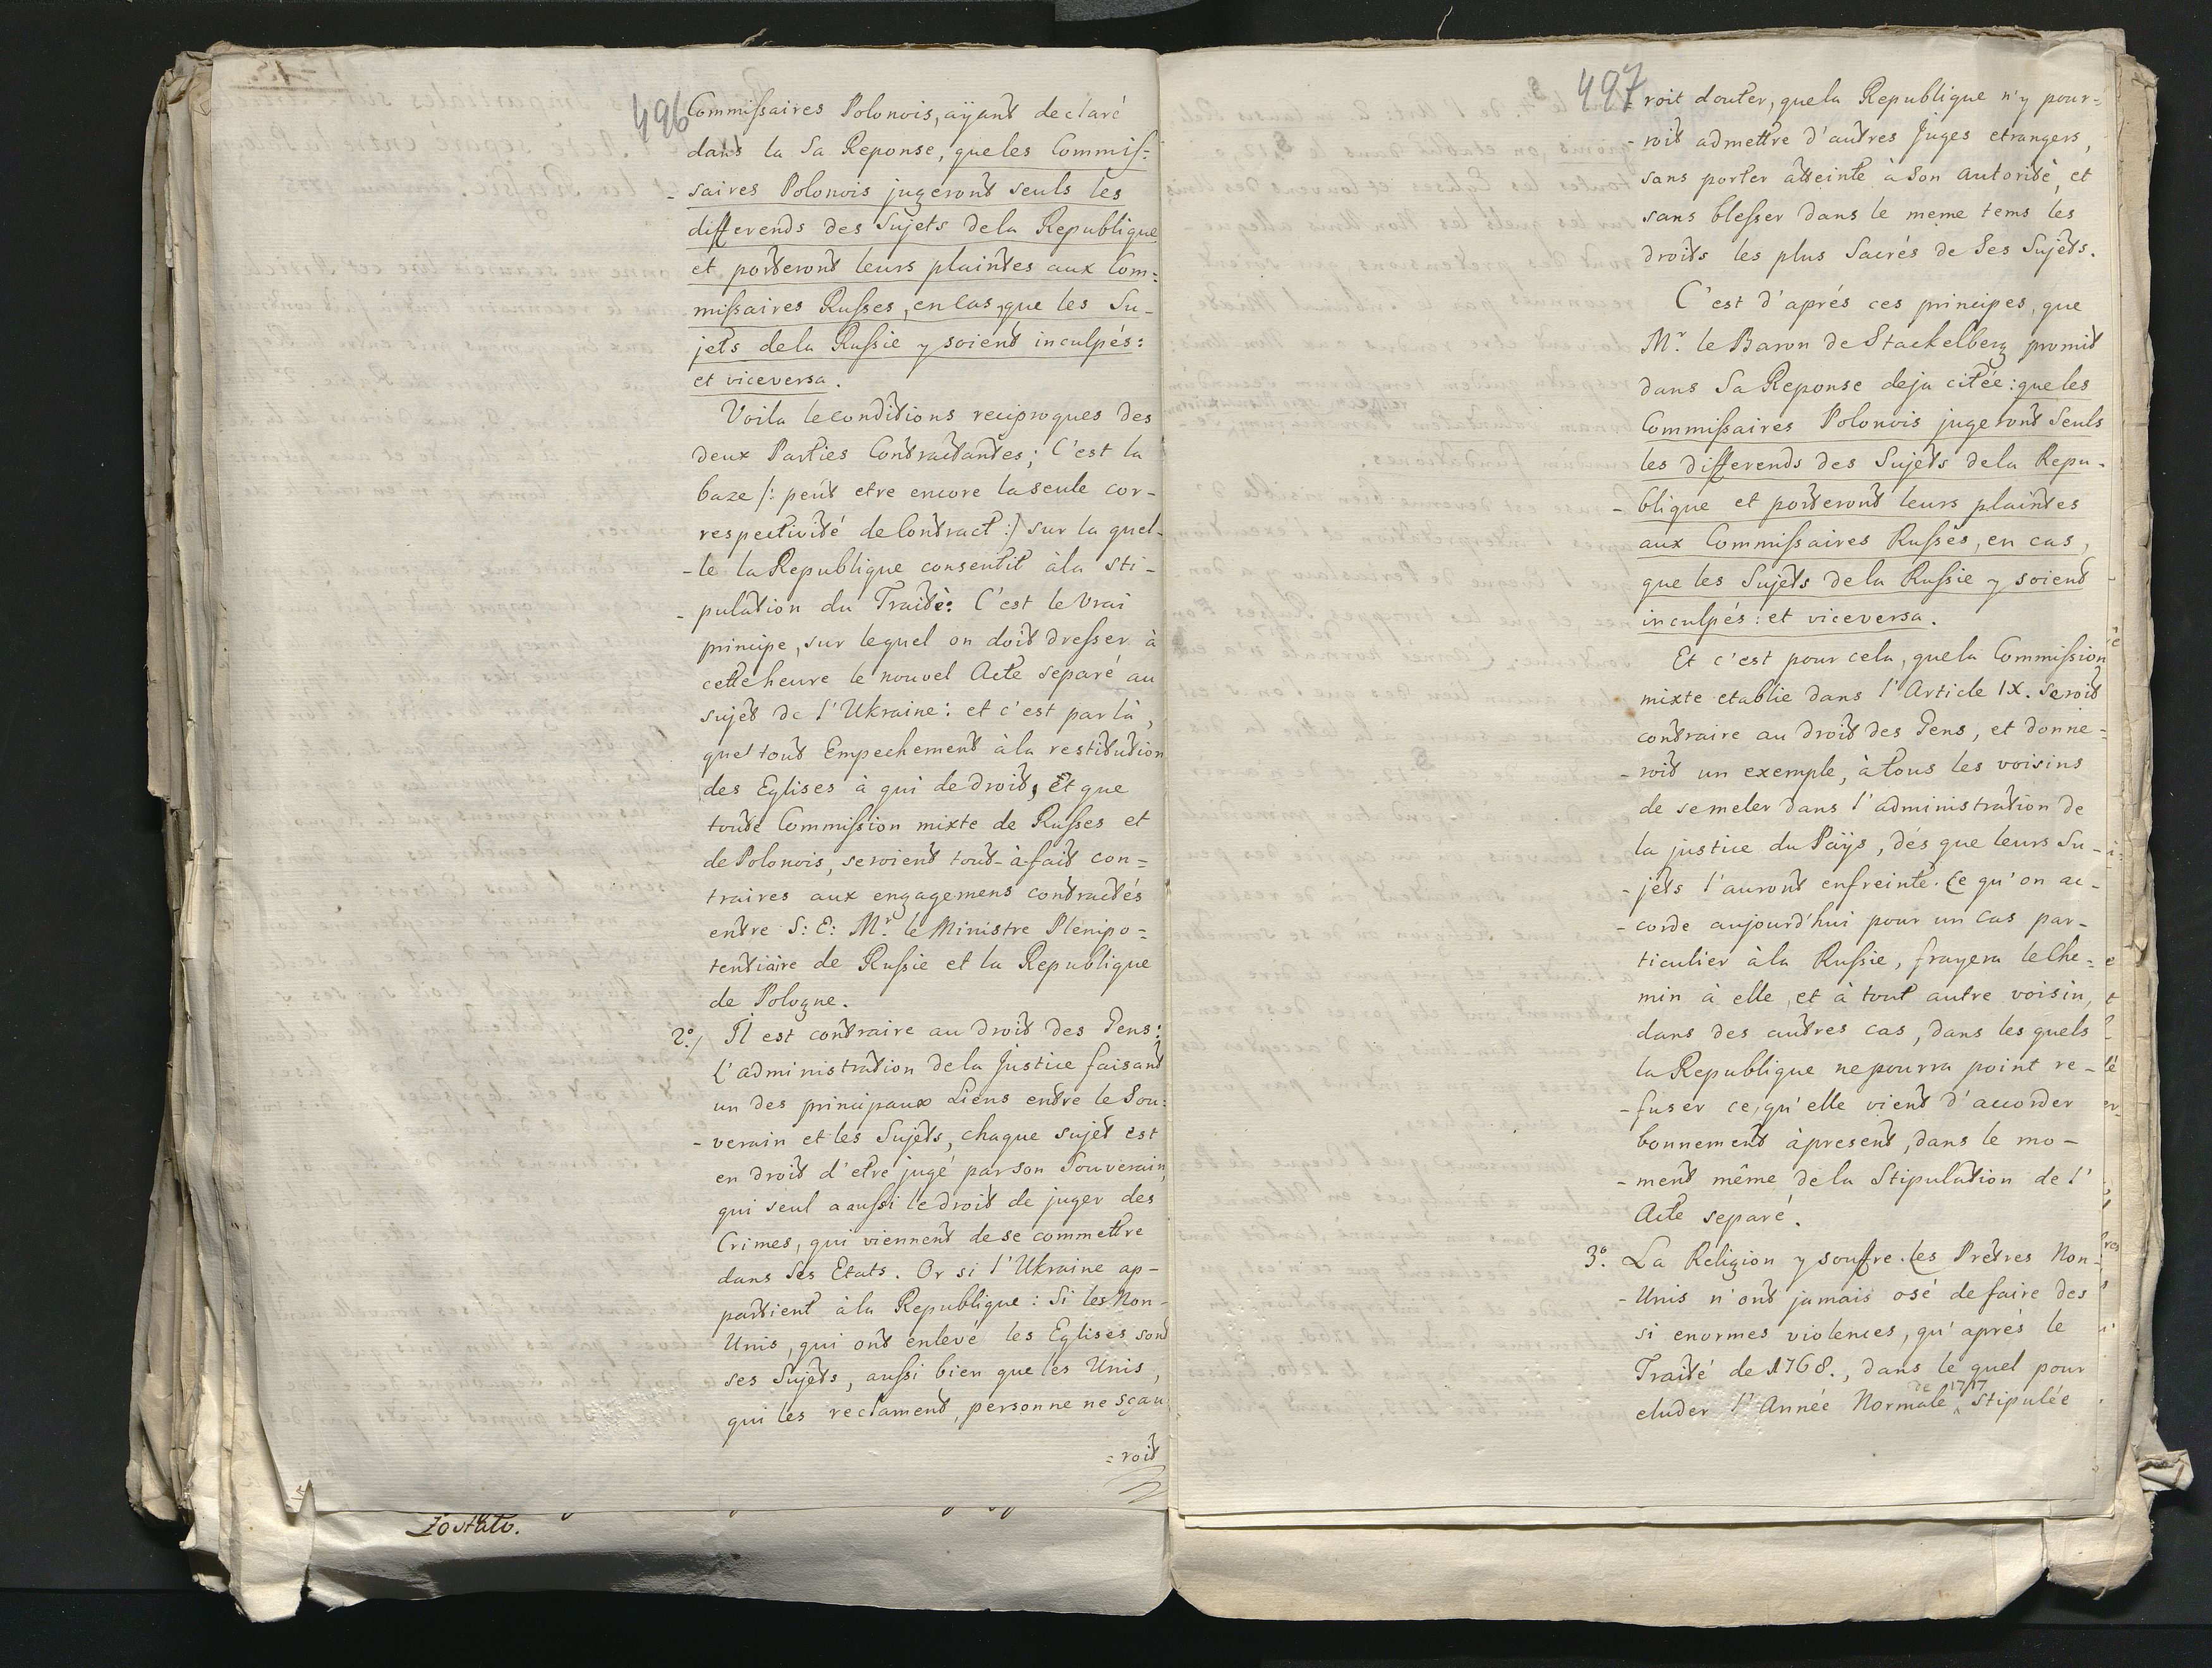 496
Commissaires Polonois, aÿant declaré
dans la Sa Reponse, que les Commis=
- saires Polonois jugeront seuls les
differends des Sujets de la Republique
et porteront leurs plaintes aux Com=
missaires Russes, en Cas, que les Su-
jets de la Russie y soient inculpés:
et viceversa.
Voila le conditions reciproques des
deux Parties Contractantes; C'est la
baze /: peut etre encore la seule cor-
respectivité de Contract :/ sur la quel-
- le la Republique consentit à la sti-
- pulation du Traité: C'est le Vrai
principe, sur lequel on doit dresser à
cette heure le nouvel Acte separé au
sujet de l'Ukraine: et c'est par là,
que tout Empechement à la restitution
des Eglises à qui de droit, Et que
toute Commission mixte de Russes et
de Polonois, seroient tout-à-fait con=
traires aux engagemens contractés
entre S: E: Mr. le Ministre Plenipo=
tentiaire de Russie et la Republique
de Pologne.
2º./ Il est contraire au droit des Gens:
L'administration de la Justice faisant
un des principaux Liens entre le Sou=
- verain et les Sujets, chaque sujet est
en droit d'etre jugé par son Souverain,
qui seul a aussi le droit de juger des
Crimes, qui viennent de se commettre
dans Ses Etats. Or si l'Ukraine ap-
partient à la Republique: Si les Non-
Unis, qui ont enlevé les Eglises sont
ses Sujets, aussi bien que les Unis,
qui les reclament, personne ne sçau
= roit
Zostało.
497
- roit douter, que la Republique n'y pour=
- roit admettre d'autres Juges etrangers,
sans porter atteinte à Son Autorité, et
sans blesser dans le meme tems les
droits les plus Sacrés de Ses Sujets.
C'est d'aprés ces principes, que
Mr. le Baron de Stackelberg promit
dans Sa Reponse deja citée: que les
Commissaires Polonois jugeront Seuls
les differends des Sujets de la Repu-
- blique et porteront leurs plaintes
aux Commissaires Russes, en cas,
que les Sujets de la Russie y soient
inculpés: et viceversa.
Et c'est pour cela, que la Commission
mixte etablie dans l'Article IX. Seroit
contraire au droit des Gens, et donne=
- roit un exemple, à tous les voisins
de se meler dans l'administration de
la justice du Païs, dés que leurs Su-
- jets l'auront enfreinte. Ce qu'on ac-
- corde aujourd'hui pour un Cas par-
ticulier à la Russie, frayera le Che=
min à elle, et à tout autre voisin,
dans des autres cas, dans les quels
la Republique ne pourra point re-
- fuser ce, qu'elle vient d'accorder
bonnement àpresent, dans le mo-
- ment même de la Stipulation de l'
Acte separé.
3º. La Religion y souffre. Les Prêtres Non-
- Unis n'ont jamais osé de faire des
si enormes violences, qu'aprés le
Traité de 1768., dans le quel pour
eluder l'Année Normale de 1717 Stipulée